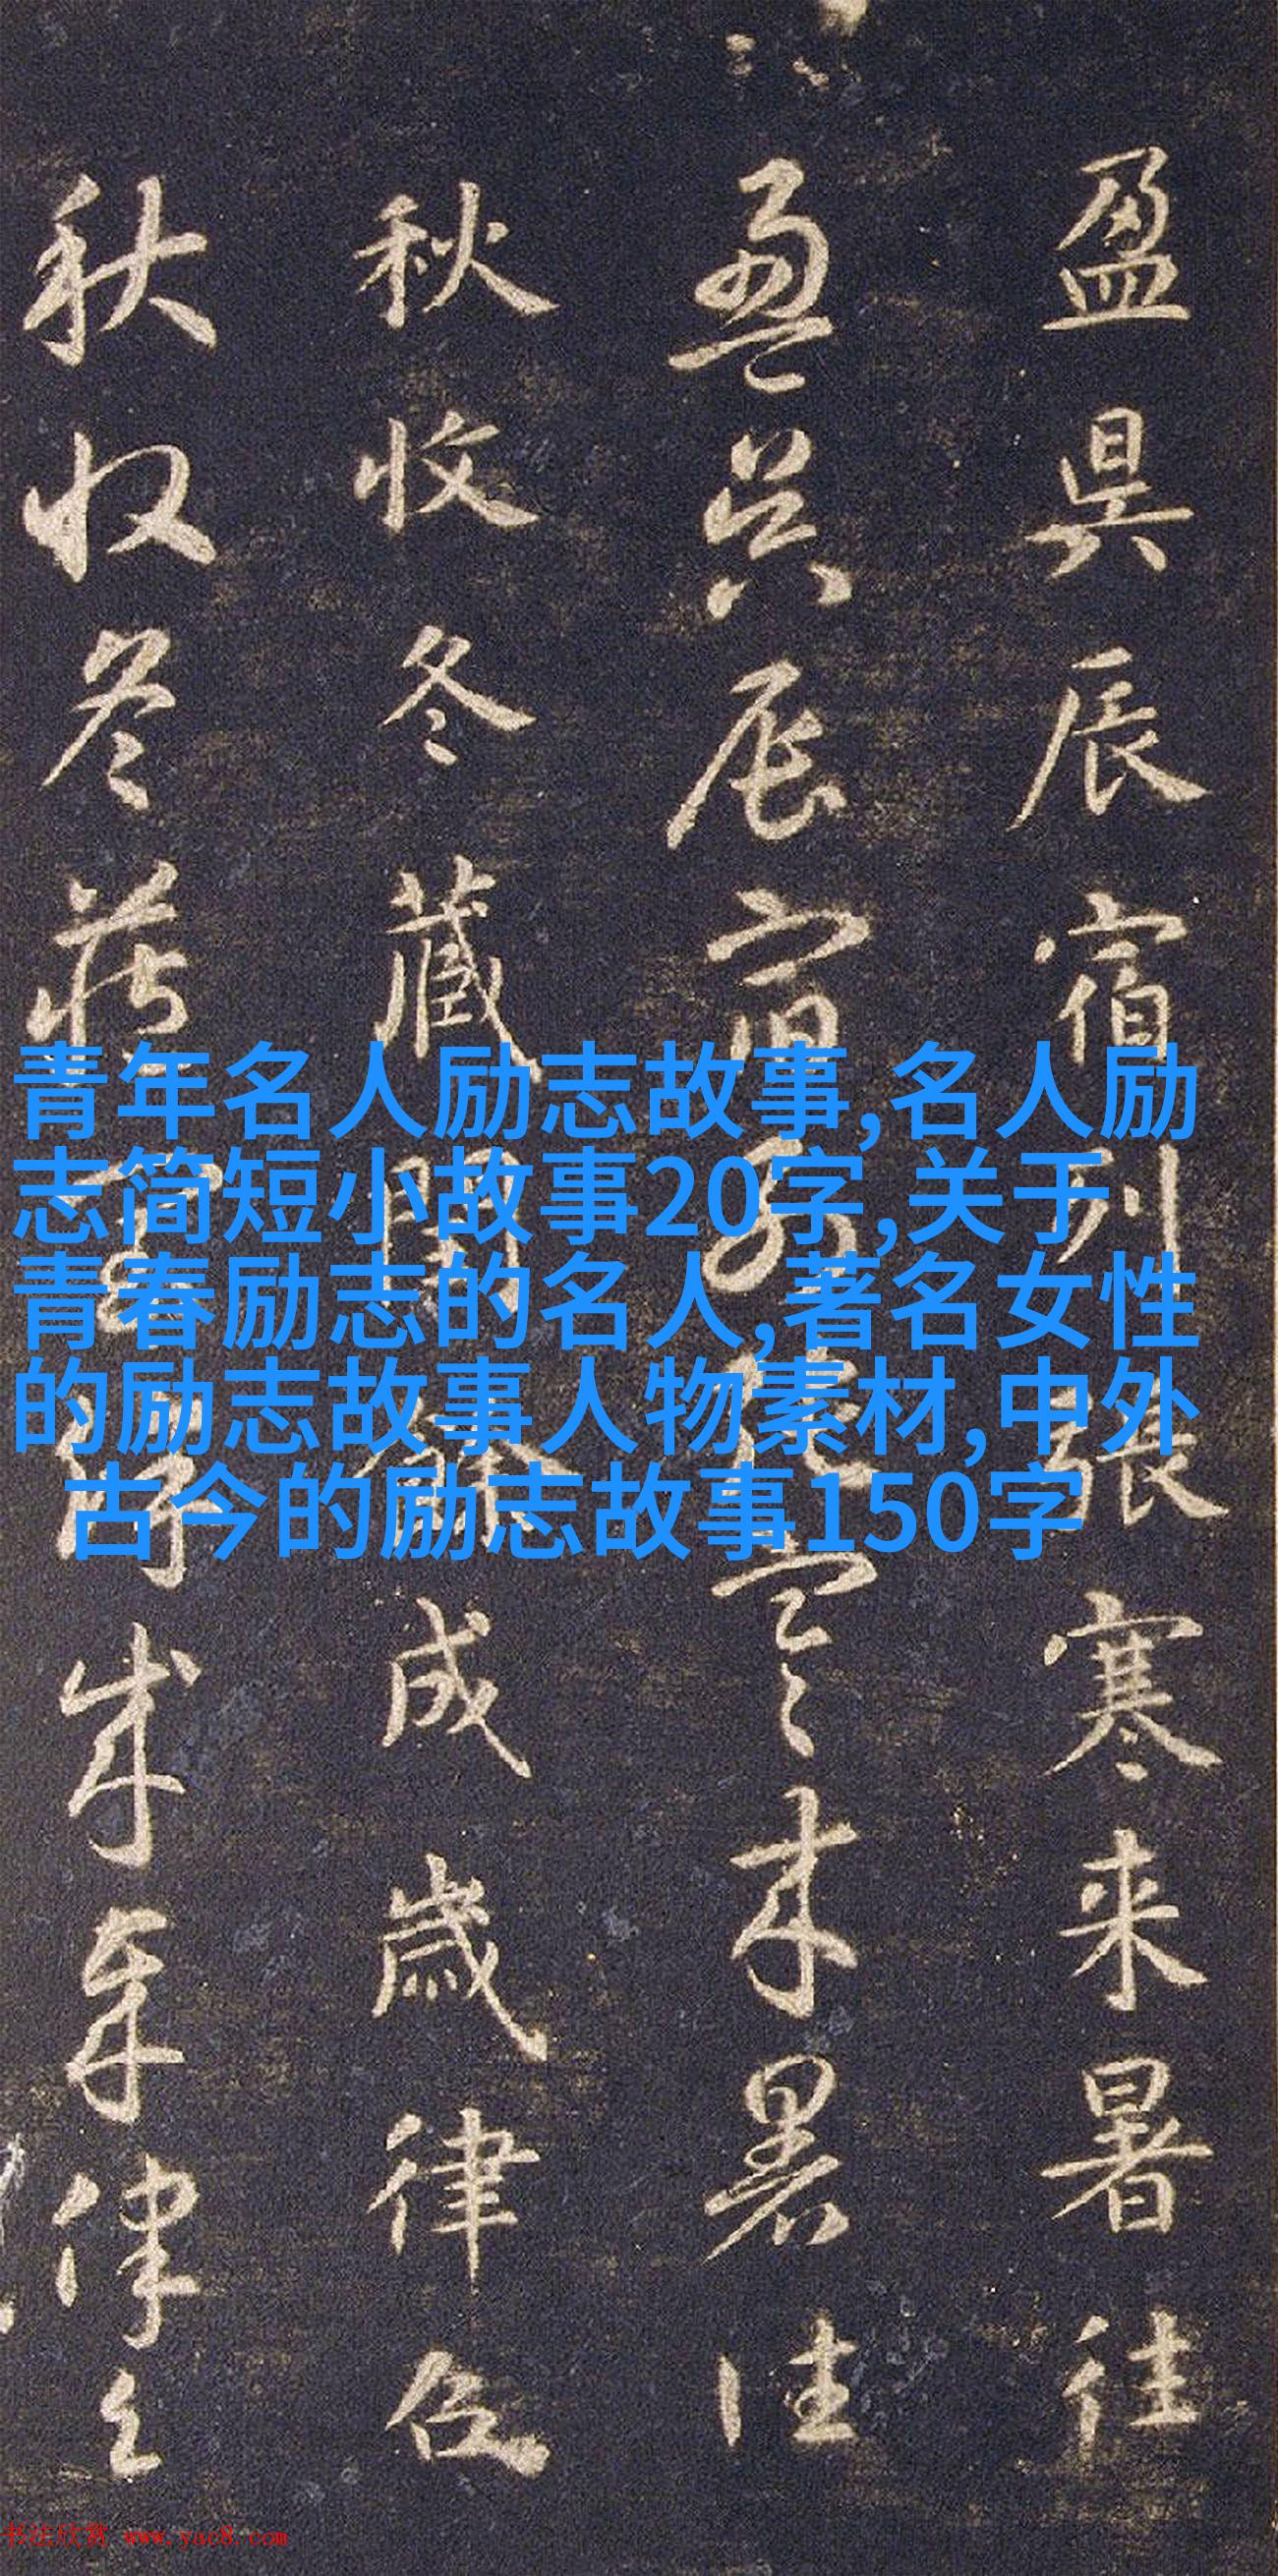 盈昃辰宿列張寒来暑往
盈昃辰宿列張寒来暑往
秋收冬藏閏餘成歲律
秋收冬藏閏餘成歲律
青年名人励志故事,名人励
志简短小故事20字,关于
青春励志的名人,著名女性
的励志故事人物素材,中外
古今的励志故事150字
书法欣赏 www.yac8.com